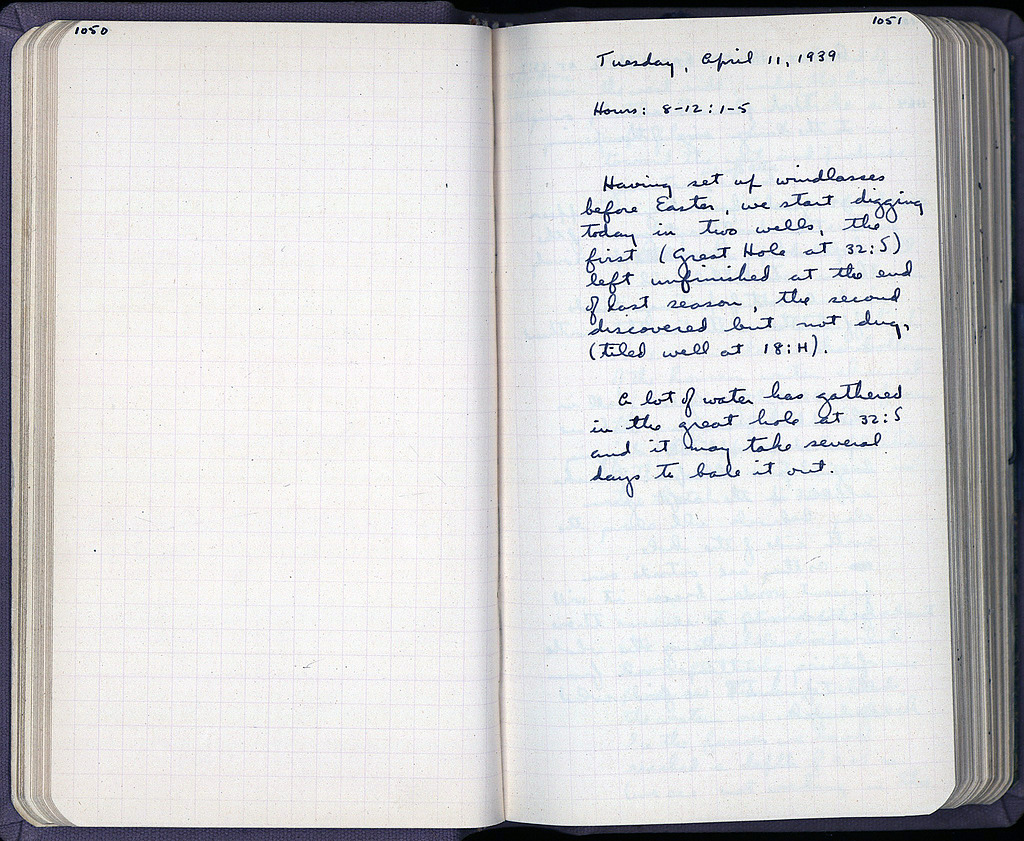 1050
1051
Tuesday, April 11, 1939
Hours: 8-12: 1-5
Having set up windlasses
before Easter, we start digging
today in two wells, the
first (Great Hole at 32:S)
left unfinished at the end
of last season, the second
discovered but not dug,
(tiled well at 18:H).
A lot of water has gathered
in the great hole at 32:S
and it may take several
days to bale it out.